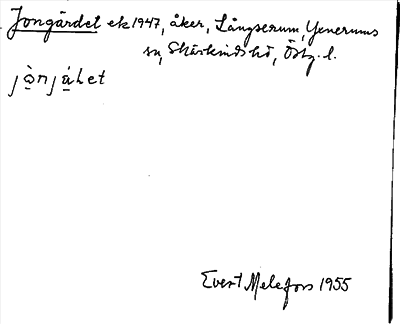 Jongärdet ek 1947, åker, Långserum, Yxnerums
sn, Skärkinds hd, Östg. l.
Evert Melefors 1955